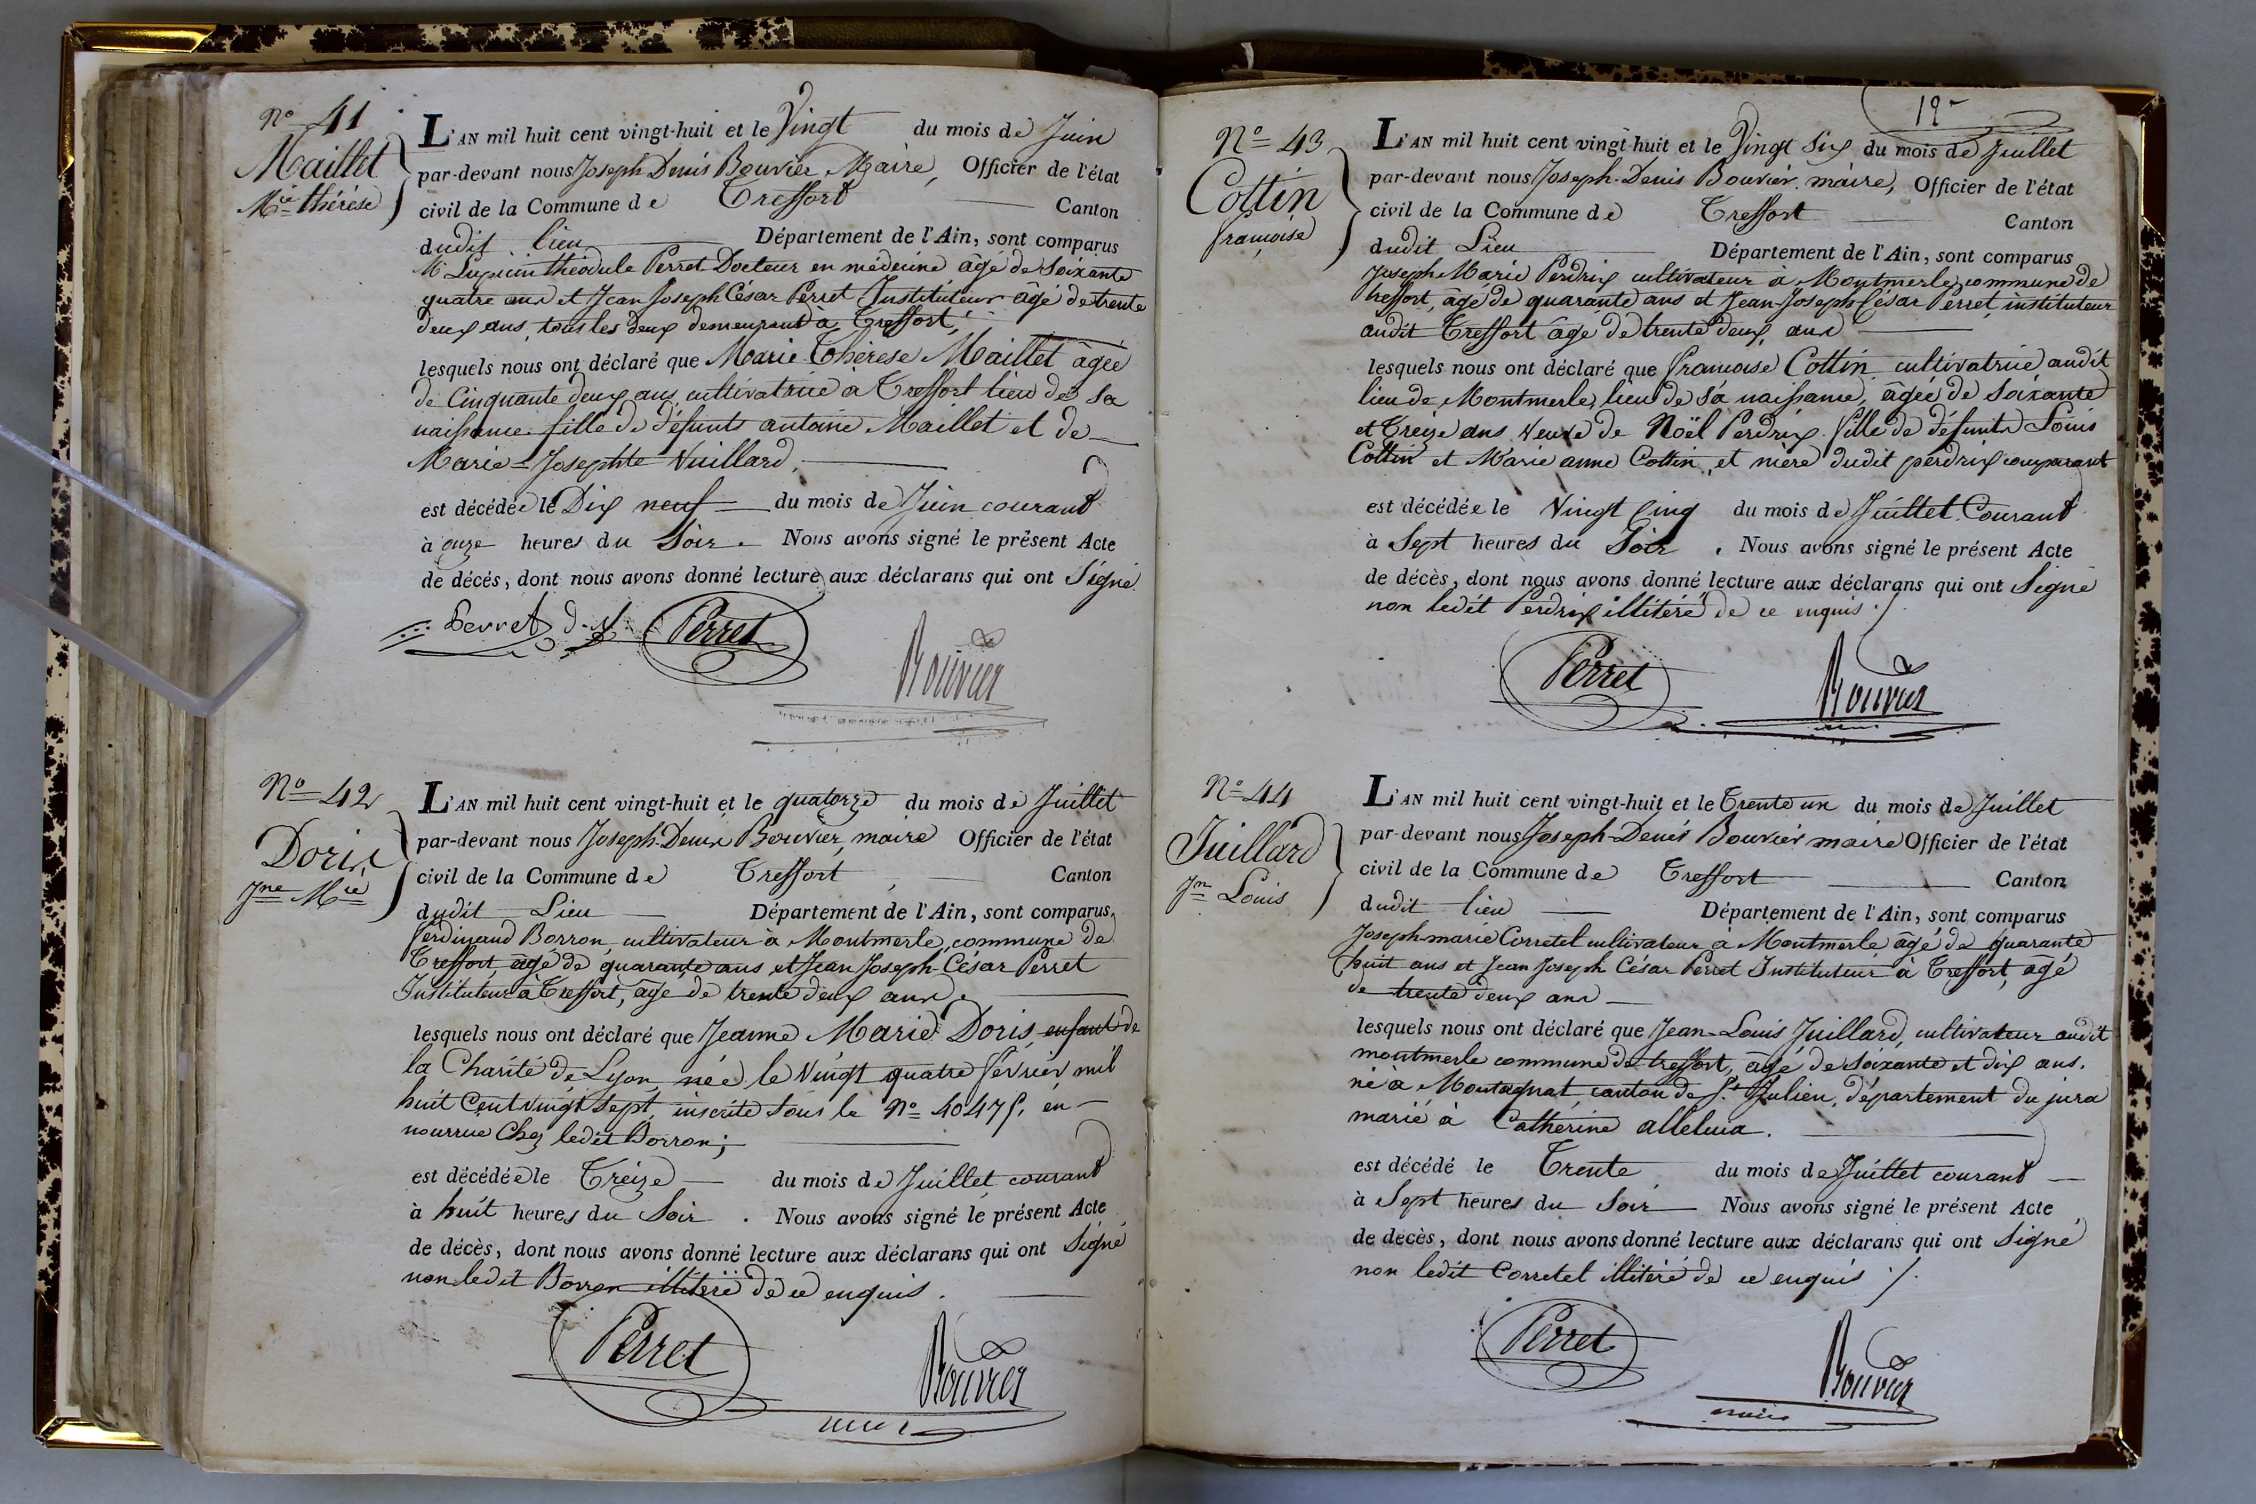 No 41
Maillet
Mie thérèse
L'AN mil huit cent vingt-huit et le Vingt du mois de Juin
par-devant nous Joseph Denis Bouvier Maire, Officier de l'état
civil de la Commune de Treffort Canton
dudit lieu Département de l'Ain, sont comparus
Mr Lupicin théodule Perret Docteur en médecine âgé de Soixante
quatre ans et Jean Joseph César Perret Instituteur âgé de trente
deux ans, tous les deux demeurant à Treffort,
lesquels nous ont déclaré que Marie Thérèse Maillet âgée
de Cinquante deux ans, cultivatrice à Treffort lieu de Sa
naissance fille de défunts antoine Maillet et de
Marie-Josephte Vuillard,
est décédée le Dix neuf du mois de Juin courant
à onze heures du Soir. Nous avons signé le présent Acte
de décés, dont nous avons donné lecture aux déclarans qui ont Signé
Perret d.
Perret
Bouvier
No 42
Doris
Jne Mie
L'AN mil huit cent vingt-huit et le quatorze du mois de Juillet
par-devant nous Joseph-Denis Bouvier, maire Officier de l'état
civil de la Commune de Treffort Canton
dudit Lieu Département de l'Ain, sont comparus
ferdinand Borron, cultivateur à Montmerle, commune de
Treffort, âgé de quarante ans et Jean Joseph-César Perret
Instituteur à Treffort, âgé de trente deux ans.
lesquels nous ont déclaré que Jeanne Marie Doris, enfant de
la Charité de Lyon, née le Vingt quatre février mil
huit Cent vingt Sept, inscrite sous le No 40475, en
nourrice Chez ledit Borron;
est décédée le Treize du mois de Juillet courant
à huit heures du Soir. Nous avons signé le présent Acte
de décès, dont nous avons donné lecture aux déclarans qui ont Signé
non ledit Borron illitéré de ce enquis.
Perret
Bouvier
No 43
Cottin
françoise
L'AN mil huit cent vingt-huit et le Vingt Six du mois de Juillet
par-devant nous Joseph-Denis Bouvier. maire, Officier de l'état
civil de la Commune de Treffort Canton
dudit Lieu Département de l'Ain, sont comparus
Joseph Marie Perdrix cultivateur à Montmerle, commune de
treffort, âgé de quarante ans et Jean-Joseph César Perret, instituteur
audit Treffort âgé de trente deux, ans
lesquels nous ont déclaré que françoise Cottin cultivatrice audit
lieu de Montmerle, lieu de Sa naissance, âgée de Soixante
et Treize ans Veuve de Noël Perdrix fille de défunts Louis
Cottin et Marie anne Cottin, et mère dudit perdrix comparant
est décédée le Vingt Cinq du mois de Juillet Courant
à Sept heures du Soir. Nous avons signé le présent Acte
de décès, dont nous avons donné lecture aux déclarans qui ont Signé
non ledit Perdrix illitéré de ce enquis ./.
Perret
Bouvier
No 44
Juillard
Jn Louis
L'AN mil huit cent vingt-huit et le Trente un du mois de Juillet
par-devant nous Joseph-Denis Bouvier maire Officier de l'état
civil de la Commune de Treffort Canton
dudit lieu Département de l'Ain, sont comparus
Joseph-marie Corretel cultivateur à Montmerle âgé de quarante
huit ans et Jean Joseph César Perret Instituteur à Treffort, âgé
de trente deux ans
lesquels nous ont déclaré que Jean-Louis Juillard, cultivateur audit
montmerle commune de treffort, âgé de Soixante et dix ans.
né à Montagnat, canton de St Julien, département du jura
marié à Catherine alleluia.
est décédé le Trente du mois de Juillet courant
à Sept heures du Soir Nous avons signé le présent Acte
de decès, dont nous avons donné lecture aux déclarans qui ont Signé
non ledit Corretel illitéré de ce enquis ./.
Perret
Bouvier